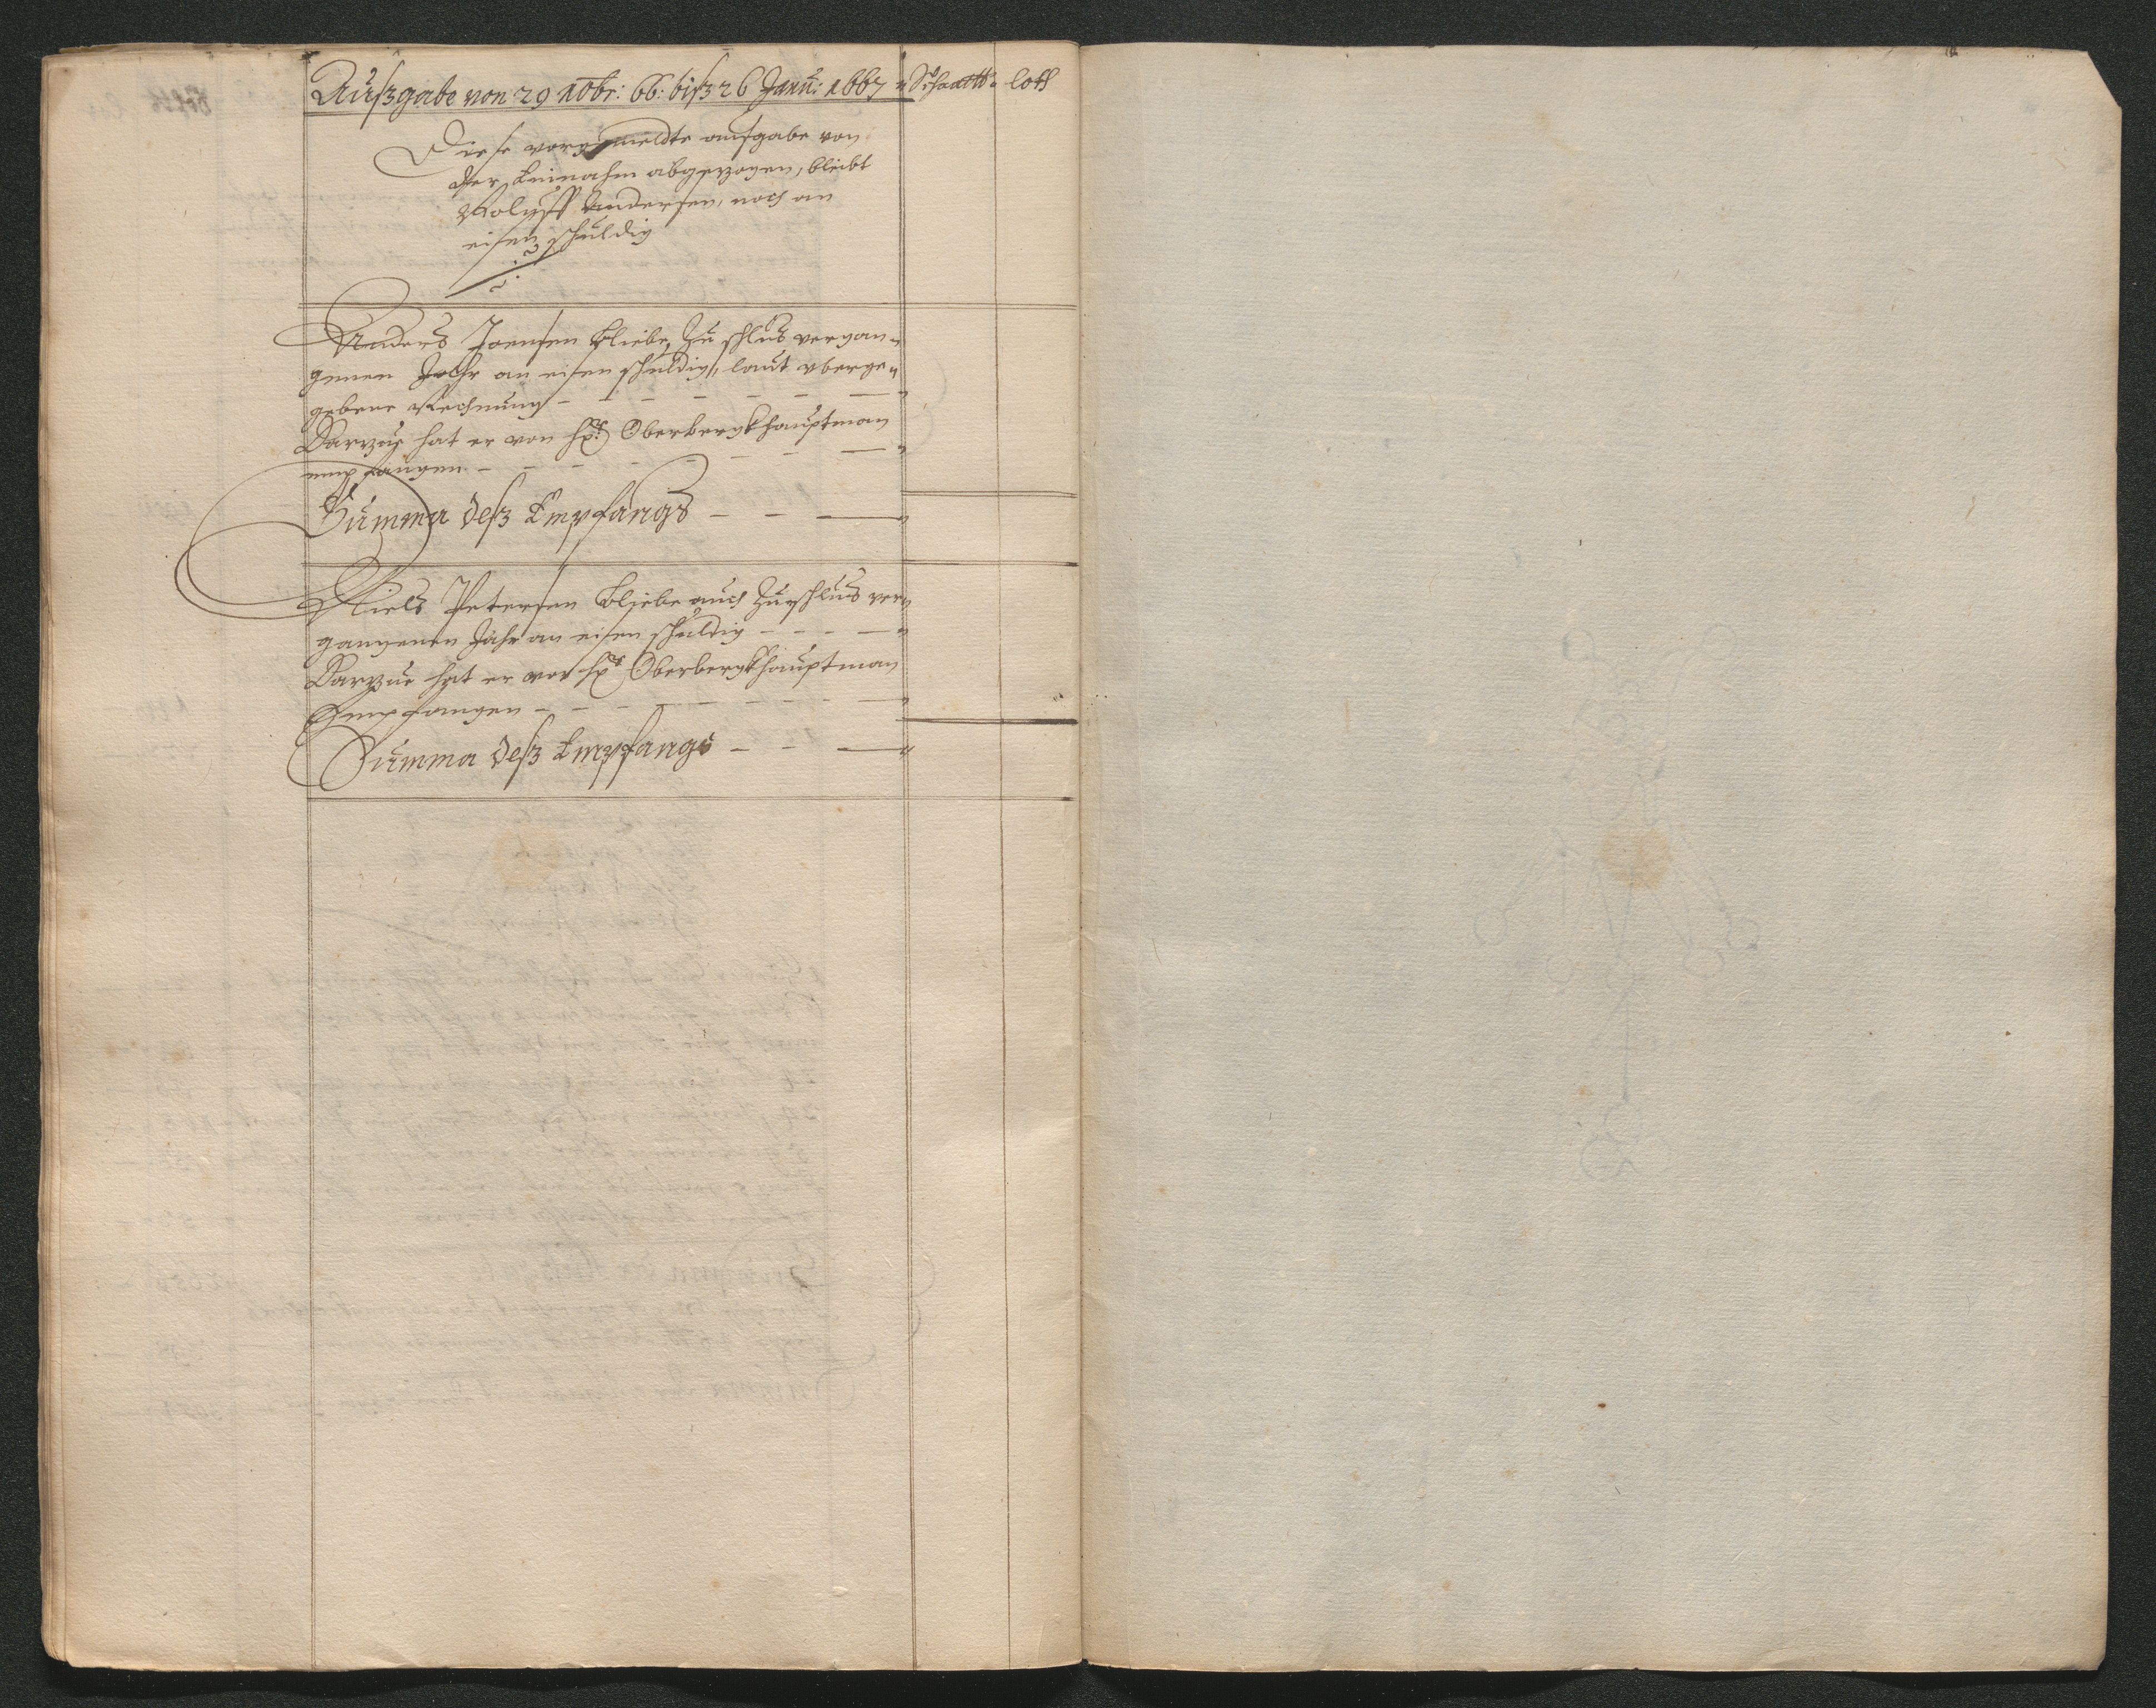 Außgabe von 29 Nobr: 66: biß 26 Janu: 1667 loth
Diese vorgemeldte ausgabe von
der Einnahm abgezogen, bleibt
Andersen, noch an
eisen schuldig
Anders Joensen bliebe, Zu schlus vergan-
genen Jahr an eisen schuldig, laut vberge-
gebene Rechnung
Darzue hat er von Hr: Oberbergkhauptman
empfangen
Summa deß Empfangs
Niels Petersen bliebe auch Zu schlus ver-
gangenen Jahr an eisen schuldig
Darzue hat er von Hr Oberbergkhauptman
Empfangen
Summa deß Empfangs